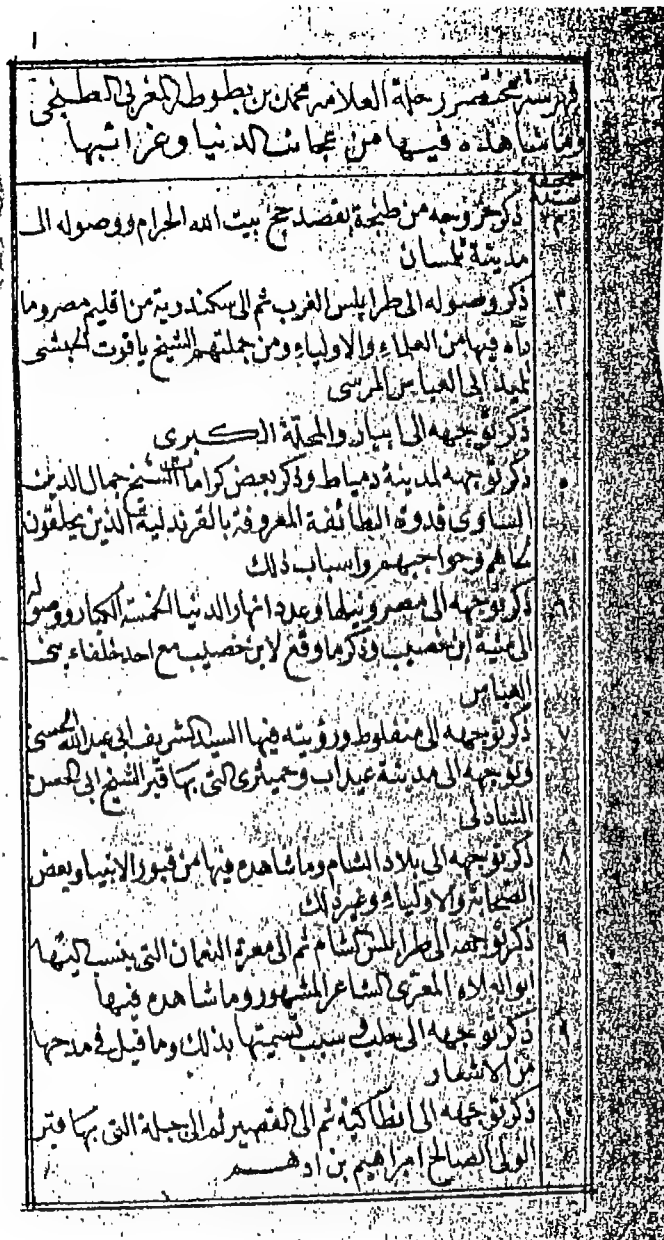 ١
فهرسة مختصر رحلة العلامه محمد بن بطوطه المغربى الطنجى
وما شاهده فيها من عجائب الدنيا وغرائبها
صحيفة
٢ ذكر خروجه من طنجة لقصد حج بيت الله الحرام ووصوله الى
مدينة تلمسان
٣ ذكر وصوله الى طرابلس الغرب ثم الى سكندرية من اقليم مصر وما
رآه فيها من العلماء والاولياء ومن جملتهم الشيخ ياقوت الحبشى
تلميذ ابى العباس المرسى
ذكر توجهه الى ابيار والمحلة الكبرى
٥ ذكر توجهه لمدينة دمياط وذكر بعض كرامات الشيخ جمال الدين
الساوى قدوة الطائفة المعروفة بالقرندلية الذين يحلقون
لحاهم وحواجبهم واسباب ذلك
٦ ذكر توجهه الى مصر ونيلها وعدد انهار الدنيا الخمسة الكبار ووصوله
الى منية ابن خصيب وذكر ما وقع لابن خصيب مع احد خلفاء بنى
العباس
٧ ذكر توجهه الى منفلوط ورؤيته فيها السيد الشريف ابى عبد الله الحسنى
وتوجهه الى مدينة عيذاب وحميثرى التى بها قبر الشيخ ابى الحسن
الشاذلى
٨ ذكر توجهه الى بلاد الشام وما شاهده فيها من قبور الانبياء وبعض
الصحابة والاولياء وغير ذلك
٩ ذكر توجهه الى طرابلس الشام ثم الى معرة النعمان التى ينسب اليها
ابو العلاء المعرى الشاعر المشهور وما شاهده فيها
٩ ذكر توجهه الى حلب فى سبب تسميتها بذلك وما قيل فى مدحها
من الاشعار
١٠ ذكر توجهه الى انطاكية ثم الى القصير ثم الى جبلة التى بها قبر
الولى الصالح ابراهيم بن ادهم